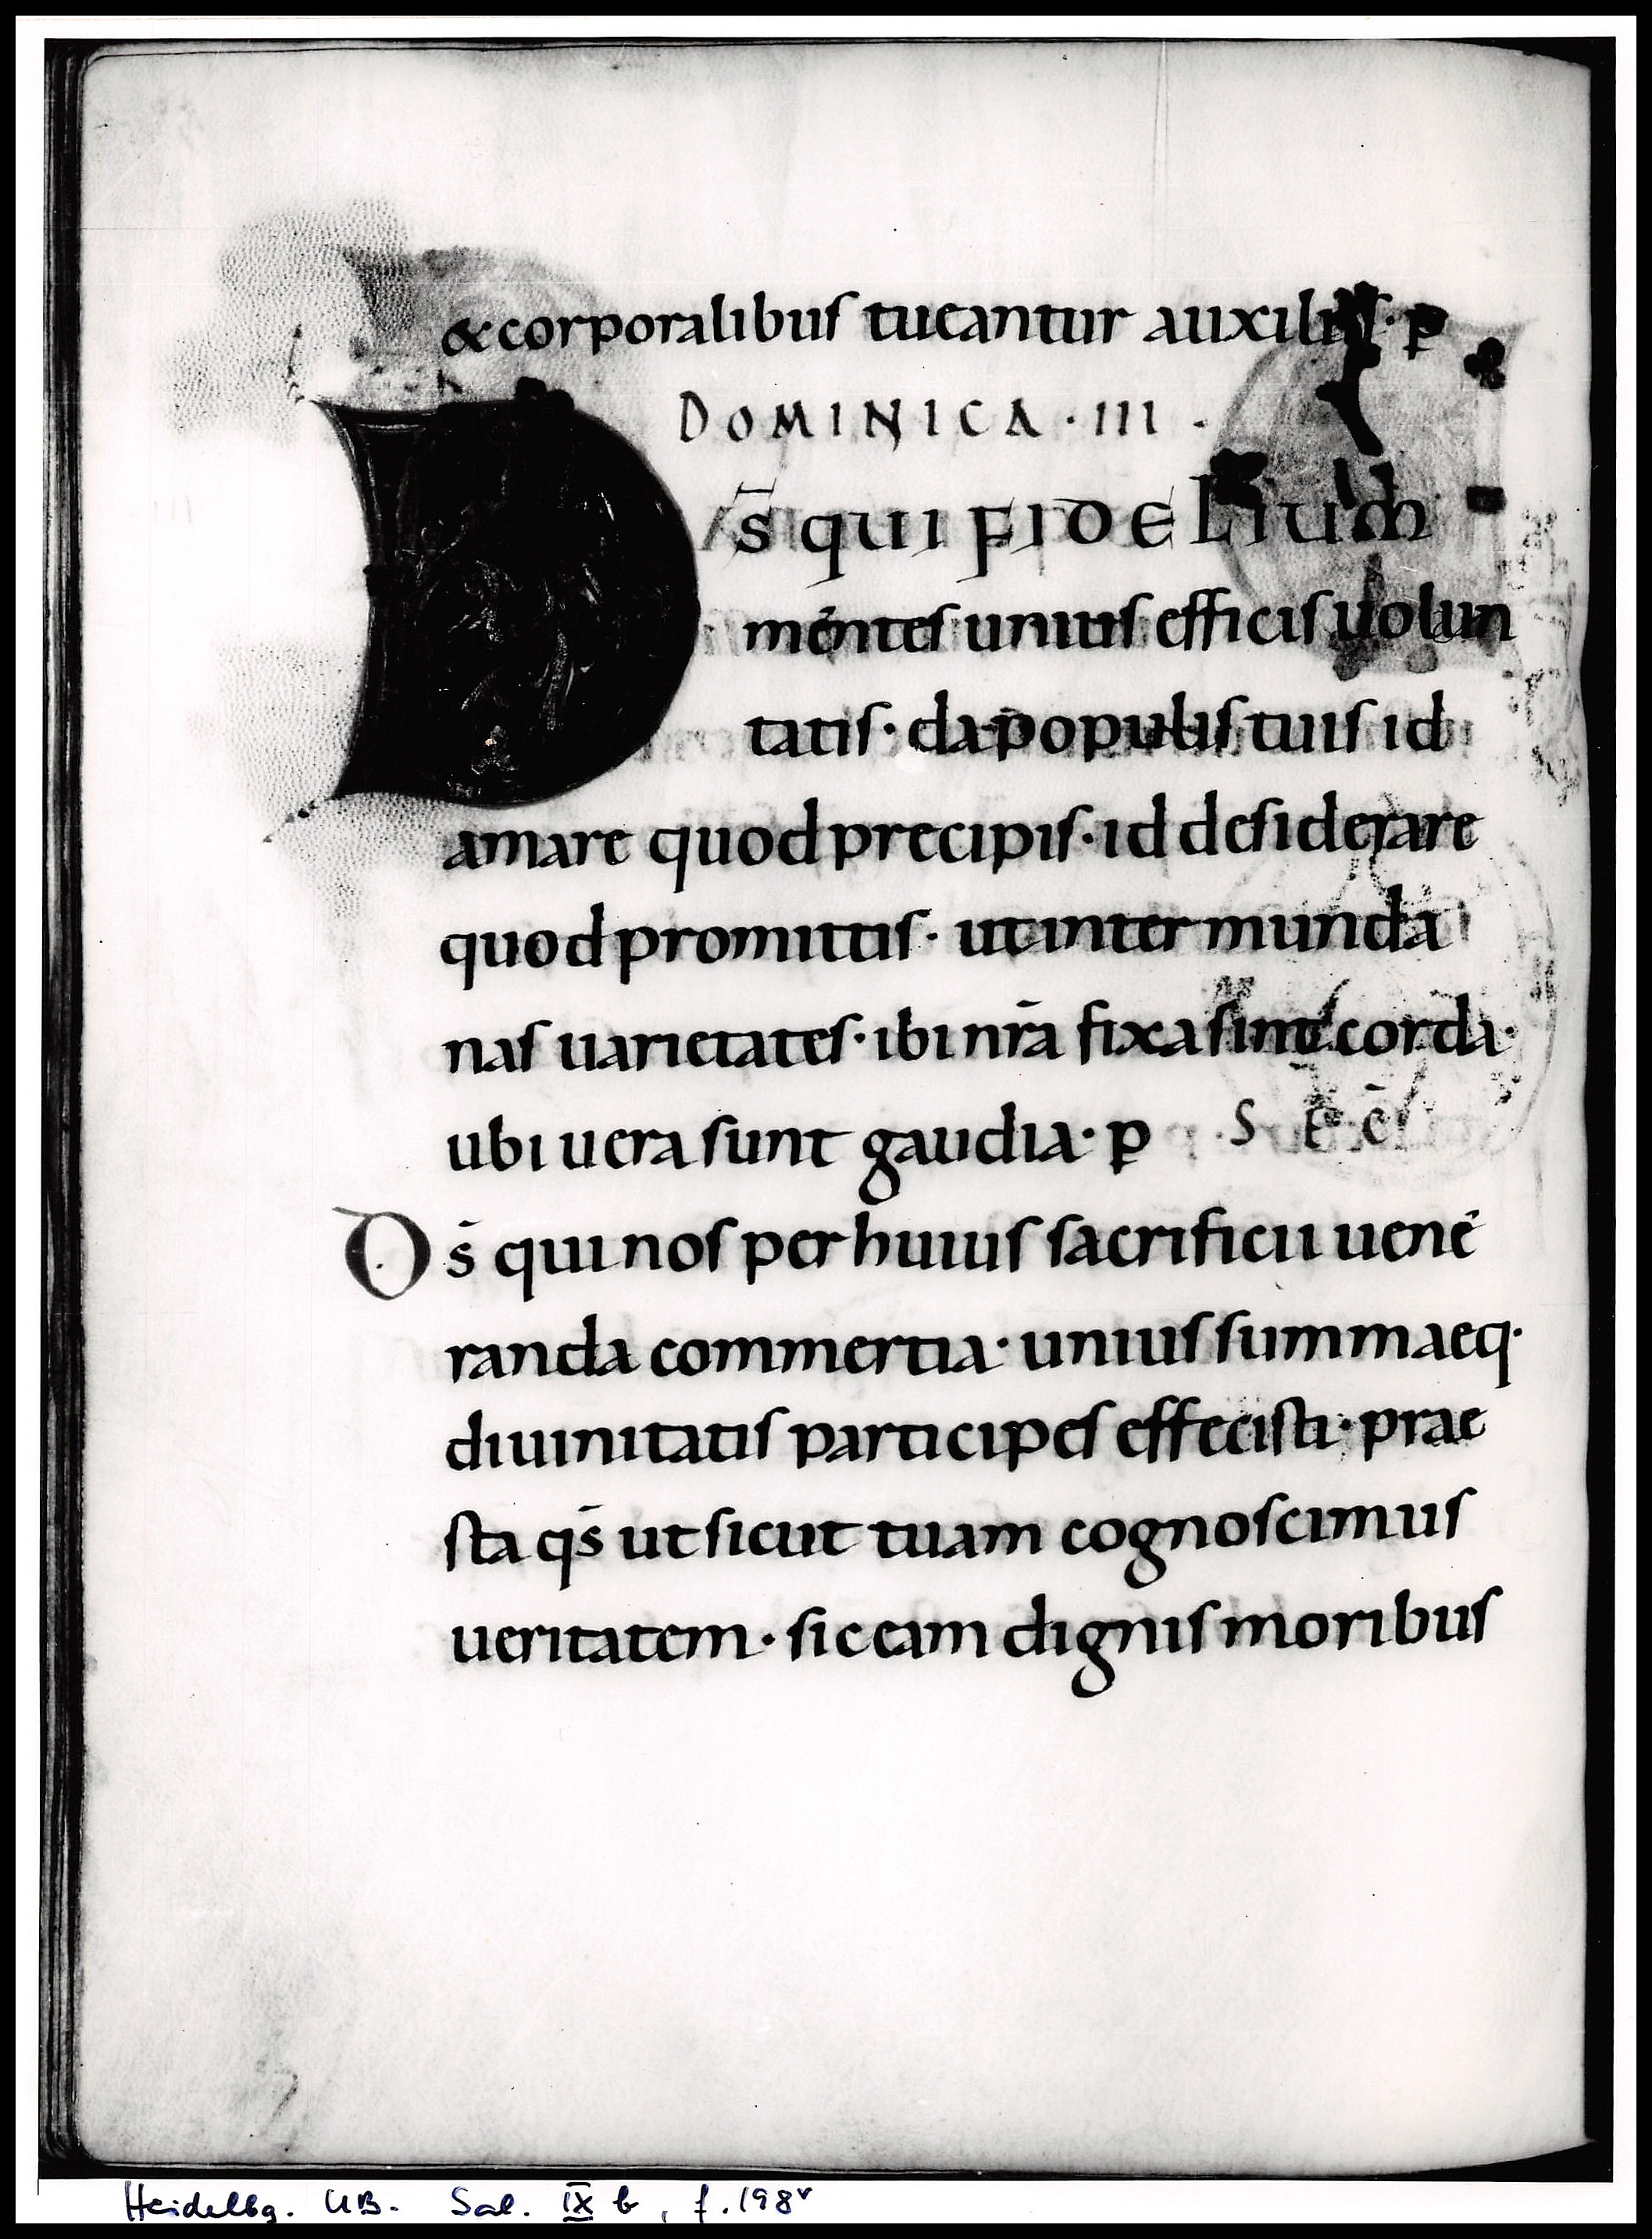 & corporalibus tueantur auxiliis · p̄
DOMINICA · III ·
D s̄ qui FIDELium
mentes unius efficis uolun
tatis · da populis tuis id
amare quod precipis · id desiderare
quod promittis · ut inter munda
nas uarietates · ibi nr̄a fixa sint corda ·
ubi uera sunt gaudia · p̄ SEC̄
Ds̄ qui nos per huius sacrificii uene
randa commertia · unius summaeq·
diuinitatis participes effecisti · prae
sta qs̄ ut sicut tuam cognoscimus
ueritatem · sic eam dignis moribus
Heidelbg. UB. Sal. IX b, f. 198v